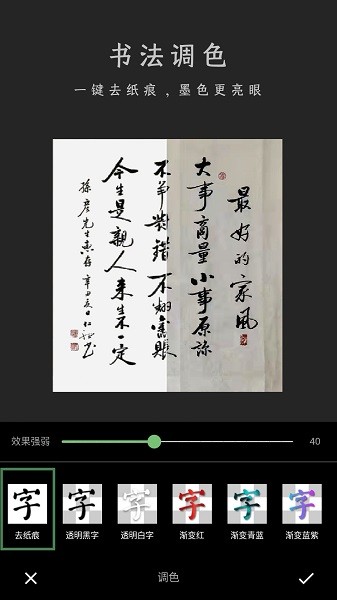 书法调色
一键去纸痕，墨色更亮眼
最好的家风
大事商量小事原谅
不争对错不翻旧账
今生是亲人来生不一定
孙彦先生惠存 辛丑
效果强弱
40
字 字 字 字 字 字
去纸痕 透明黑字 透明白字 渐变红 渐变青蓝 渐变蓝紫
调色